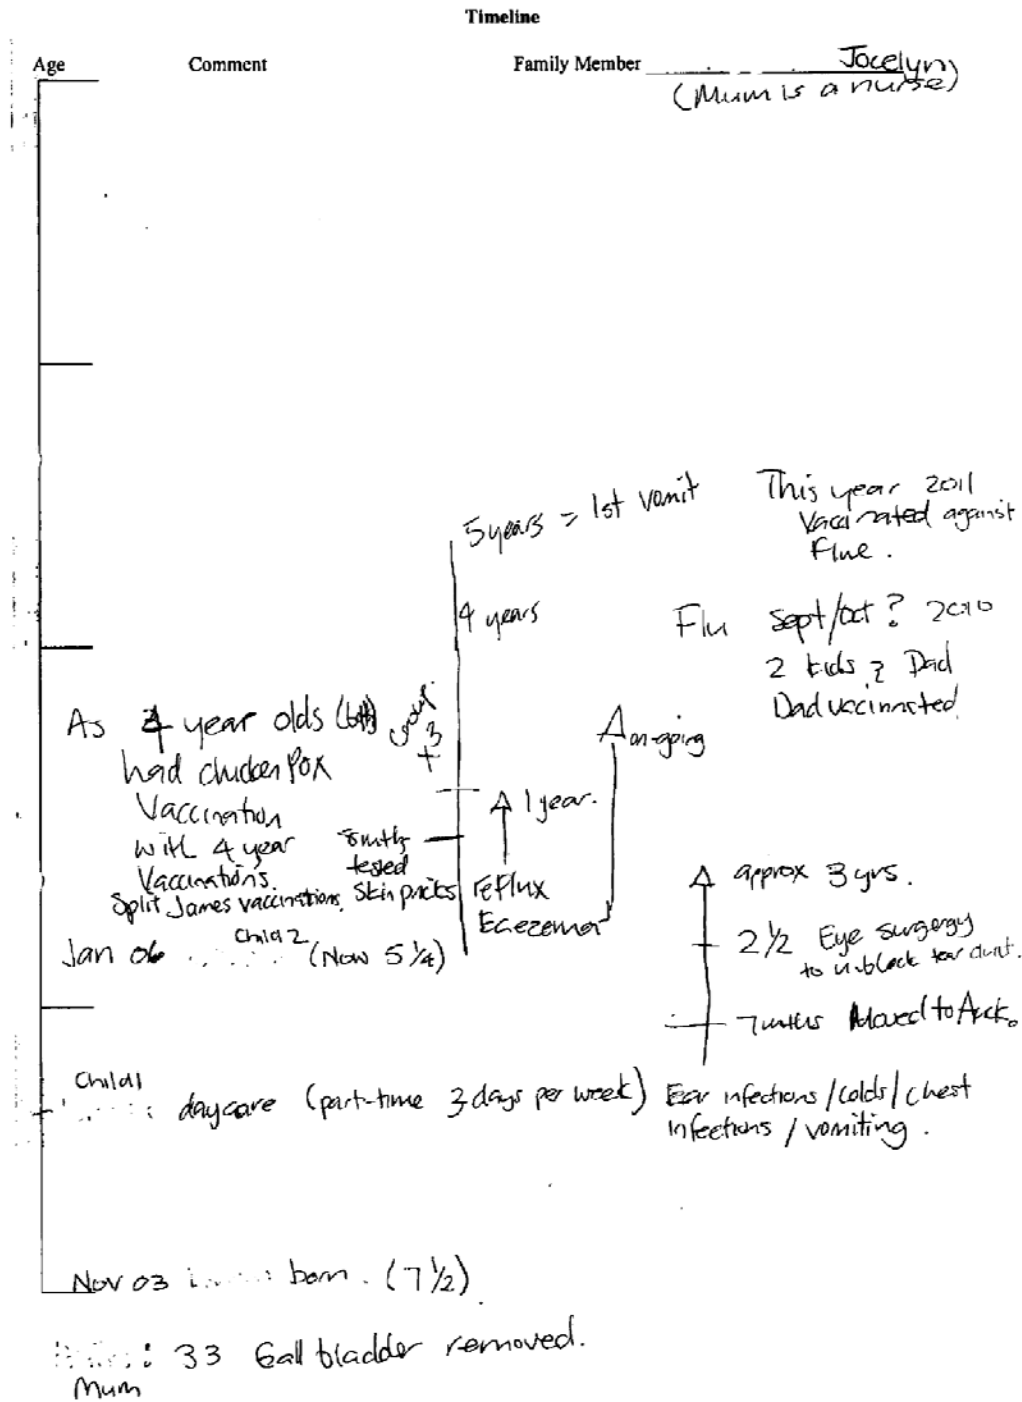 Timeline
Age Comment Family Member Jocelyn
(Mum is a nurse)
5 years = 1st vomit
This year 2011
Vaccinated against
Flue.
4 years
Flu Sept/Oct? 2010
2 kids ? Dad
Dad vaccinated
As 4 year olds (both)
had chicken Pox
Vaccination
with 4 year
Vaccinations.
Split James vaccinations.
on-going
1 year.
8mths
tested
Skin pricks
reflux
Eczema
Jan 06 Child 2 (Now 5 1/4)
approx 3 yrs.
2 1/2 Eye surgergy
to unblock tear duct.
7 mths Moved to Auck.
Child 1
daycare (part-time 3 days per week)
Ear infections/colds/chest
infections/vomiting.
Nov 03 born. (7 1/2)
: 33 Gall bladder removed.
Mum